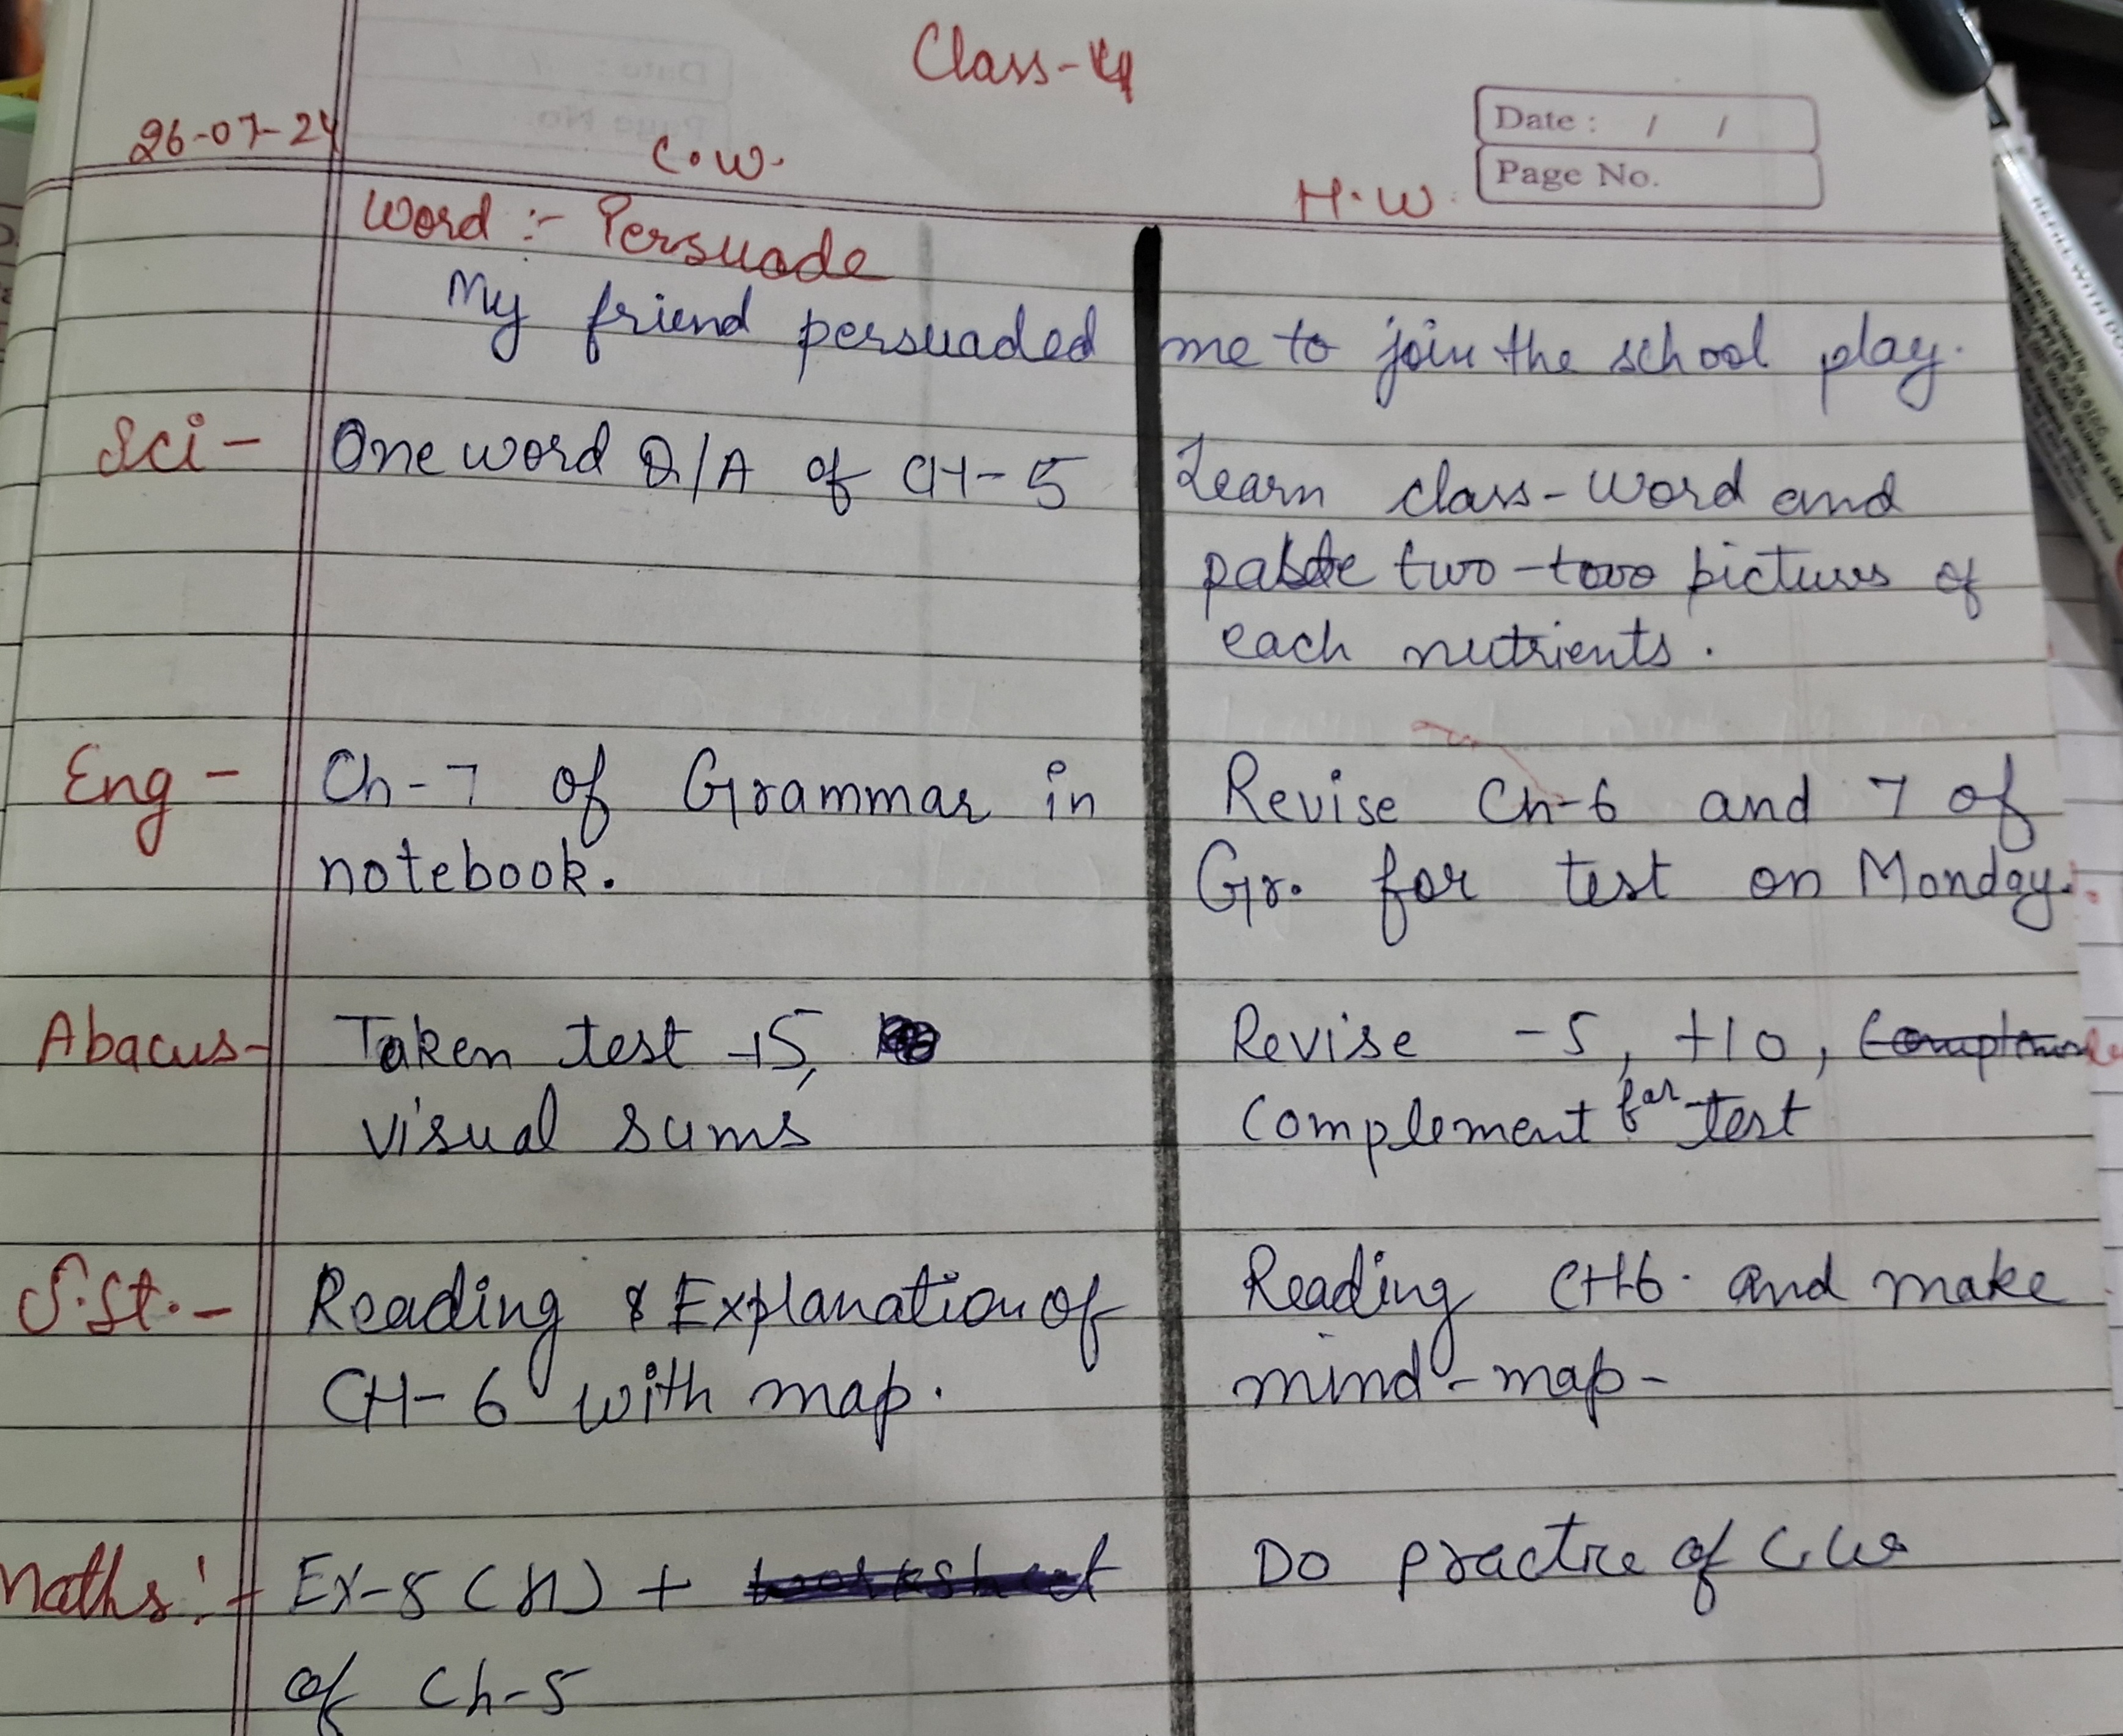 Class-4
Date : / /
26-07-24
C.W.
Page No.
H.W.
Word :- Persuade
My friend persuaded me to join the school play.
Sci - One word Q/A of CH-5 Learn class-word and
paste two-two pictures of
each nutrients.
Eng - Ch-7 of Grammar in Revise Ch-6 and 7 of
notebook. Gr. for test on Monday.
Abacus- Taken test +5, Revise -5, +10,
visual sums Complement for test
S.St. - Reading & Explanation of Reading CH6. and make
CH-6 with map. mind-map-
Maths:- Ex-5 ( ) + worksheet Do practice of C.W
of Ch-5